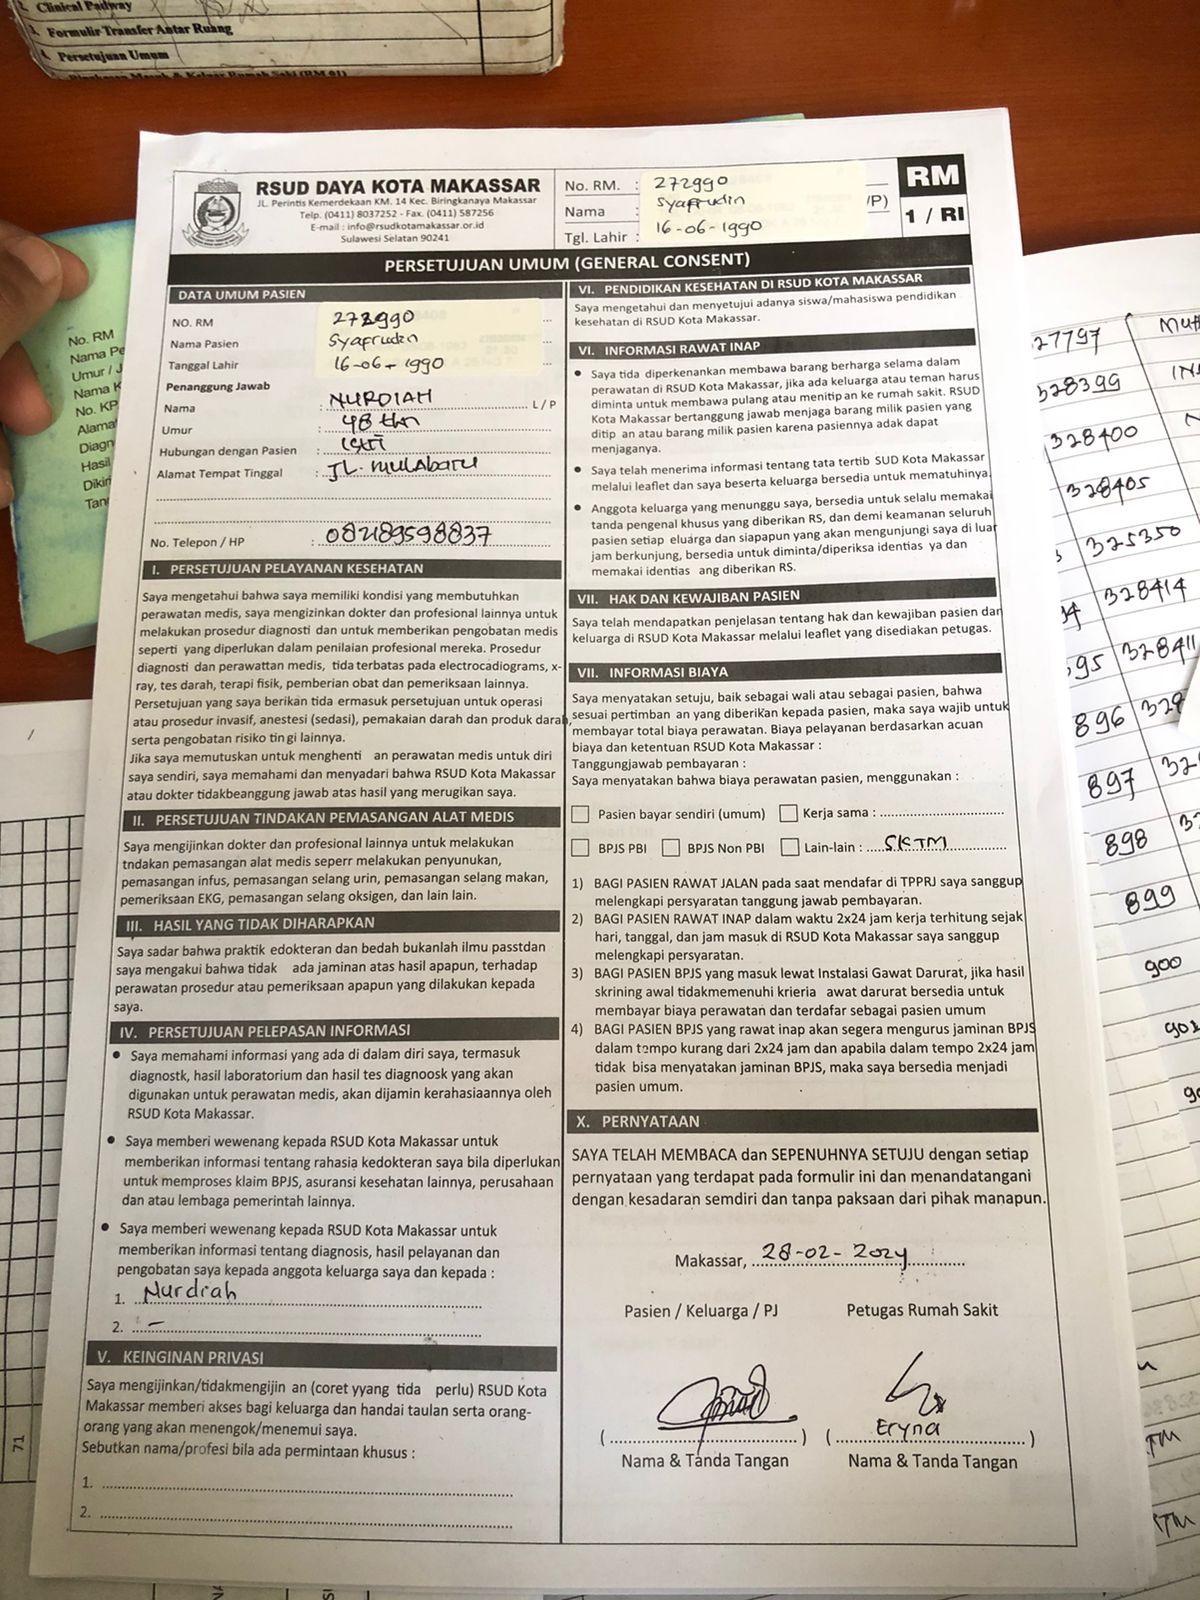 2. Clinical Padway
3. Formulir Transfer Antar Ruang
4. Persetujuan Umum
RSUD DAYA KOTA MAKASSAR
JL. Perintis Kemerdekaan KM. 14 Kec. Biringkanaya Makassar
Telp. (0411) 8037252 - Fax. (0411) 587256
E-mail : info@rsudkotamakassar.or.id
Sulawesi Selatan 90241
No. RM. : 272990
Nama : Syafrudin /P)
Tgl. Lahir : 16-06-1990
RM
1 / RI
PERSETUJUAN UMUM (GENERAL CONSENT)
DATA UMUM PASIEN
NO. RM 272990
Nama Pasien Syafrudin
Tanggal Lahir 16-06-1990
Penanggung Jawab
Nama : NURDIAH L / P
Umur : 48 thn
Hubungan dengan Pasien : istri
Alamat Tempat Tinggal : JL.
No. Telepon / HP : 082189598837
I. PERSETUJUAN PELAYANAN KESEHATAN
Saya mengetahui bahwa saya memiliki kondisi yang membutuhkan
perawatan medis, saya mengizinkan dokter dan profesional lainnya untuk
melakukan prosedur diagnosti dan untuk memberikan pengobatan medis
seperti yang diperlukan dalam penilaian profesional mereka. Prosedur
diagnosti dan perawattan medis, tida terbatas pada electrocadiograms, x-
ray, tes darah, terapi fisik, pemberian obat dan pemeriksaan lainnya.
Persetujuan yang saya berikan tida ermasuk persetujuan untuk operasi
atau prosedur invasif, anestesi (sedasi), pemakaian darah dan produk darah,
serta pengobatan risiko tin gi lainnya.
Jika saya memutuskan untuk menghenti an perawatan medis untuk diri
saya sendiri, saya memahami dan menyadari bahwa RSUD Kota Makassar
atau dokter tidakbeanggung jawab atas hasil yang merugikan saya.
II. PERSETUJUAN TINDAKAN PEMASANGAN ALAT MEDIS
Saya mengijinkan dokter dan profesional lainnya untuk melakukan
tndakan pemasangan alat medis seperr melakukan penyunukan,
pemasangan infus, pemasangan selang urin, pemasangan selang makan,
pemeriksaan EKG, pemasangan selang oksigen, dan lain lain.
III. HASIL YANG TIDAK DIHARAPKAN
Saya sadar bahwa praktik edokteran dan bedah bukanlah ilmu passtdan
saya mengakui bahwa tidak ada jaminan atas hasil apapun, terhadap
perawatan prosedur atau pemeriksaan apapun yang dilakukan kepada
saya.
IV. PERSETUJUAN PELEPASAN INFORMASI
• Saya memahami informasi yang ada di dalam diri saya, termasuk
diagnostk, hasil laboratorium dan hasil tes diagnoosk yang akan
digunakan untuk perawatan medis, akan dijamin kerahasiaannya oleh
RSUD Kota Makassar.
• Saya memberi wewenang kepada RSUD Kota Makassar untuk
memberikan informasi tentang rahasia kedokteran saya bila diperlukan
untuk memproses klaim BPJS, asuransi kesehatan lainnya, perusahaan
dan atau lembaga pemerintah lainnya.
• Saya memberi wewenang kepada RSUD Kota Makassar untuk
memberikan informasi tentang diagnosis, hasil pelayanan dan
pengobatan saya kepada anggota keluarga saya dan kepada :
1. Nurdiah
2. -
V. KEINGINAN PRIVASI
Saya mengijinkan/tidakmengijin an (coret yyang tida perlu) RSUD Kota
Makassar memberi akses bagi keluarga dan handai taulan serta orang-
orang yang akan menengok/menemui saya.
Sebutkan nama/profesi bila ada permintaan khusus :
1.
2.
VI. PENDIDIKAN KESEHATAN DI RSUD KOTA MAKASSAR
Saya mengetahui dan menyetujui adanya siswa/mahasiswa pendidikan
kesehatan di RSUD Kota Makassar.
VI. INFORMASI RAWAT INAP
• Saya tida diperkenankan membawa barang berharga selama dalam
perawatan di RSUD Kota Makassar, jika ada keluarga atau teman harus
diminta untuk membawa pulang atau menitip an ke rumah sakit. RSUD
Kota Makassar bertanggung jawab menjaga barang milik pasien yang
ditip an atau barang milik pasien karena pasiennya adak dapat
menjaganya.
• Saya telah menerima informasi tentang tata tertib SUD Kota Makassar
melalui leaflet dan saya beserta keluarga bersedia untuk mematuhinya.
• Anggota keluarga yang menunggu saya, bersedia untuk selalu memakai
tanda pengenal khusus yang diberikan RS, dan demi keamanan seluruh
pasien setiap eluárga dan siapapun yang akan mengunjungi saya di luar
jam berkunjung, bersedia untuk diminta/diperiksa identias ya dan
memakai identias ang diberikan RS.
VII. HAK DAN KEWAJIBAN PASIEN
Saya telah mendapatkan penjelasan tentang hak dan kewajiban pasien dan
keluarga di RSUD Kota Makassar melalui leaflet yang disediakan petugas.
VII. INFORMASI BIAYA
Saya menyatakan setuju, baik sebagai wali atau sebagai pasien, bahwa
sesuai pertimban an yang diberikan kepada pasien, maka saya wajib untuk
membayar total biaya perawatan. Biaya pelayanan berdasarkan acuan
biaya dan ketentuan RSUD Kota Makassar :
Tanggungjawab pembayaran :
Saya menyatakan bahwa biaya perawatan pasien, menggunakan :
Pasien bayar sendiri (umum) Kerja sama :
BPJS PBI BPJS Non PBI Lain-lain : SKTM
1) BAGI PASIEN RAWAT JALAN pada saat mendafar di TPPRJ saya sanggup
melengkapi persyaratan tanggung jawab pembayaran.
2) BAGI PASIEN RAWAT INAP dalam waktu 2x24 jam kerja terhitung sejak
hari, tanggal, dan jam masuk di RSUD Kota Makassar saya sanggup
melengkapi persyaratan.
3) BAGI PASIEN BPJS yang masuk lewat Instalasi Gawat Darurat, jika hasil
skrining awal tidakmemenuhi krieria awat darurat bersedia untuk
membayar biaya perawatan dan terdafar sebagai pasien umum
4) BAGI PASIEN BPJS yang rawat inap akan segera mengurus jaminan BPJS
dalam tempo kurang dari 2x24 jam dan apabila dalam tempo 2x24 jam
tidak bisa menyatakan jaminan BPJS, maka saya bersedia menjadi
pasien umum.
X. PERNYATAAN
SAYA TELAH MEMBACA dan SEPENUHNYA SETUJU dengan setiap
pernyataan yang terdapat pada formulir ini dan menandatangani
dengan kesadaran semdiri dan tanpa paksaan dari pihak manapun.
Makassar, 28-02-2024
Pasien / Keluarga / PJ Petugas Rumah Sakit
Eryna
(....) (....)
Nama & Tanda Tangan Nama & Tanda Tangan
No. RM
Nama Pe
Umur / J
Nama K
No. KP
Alama
Diagn
Hasil
Dikiri
Tan
71
27797
328399
328400
328405
325350
328414
95 328411
896
897
898
899
900